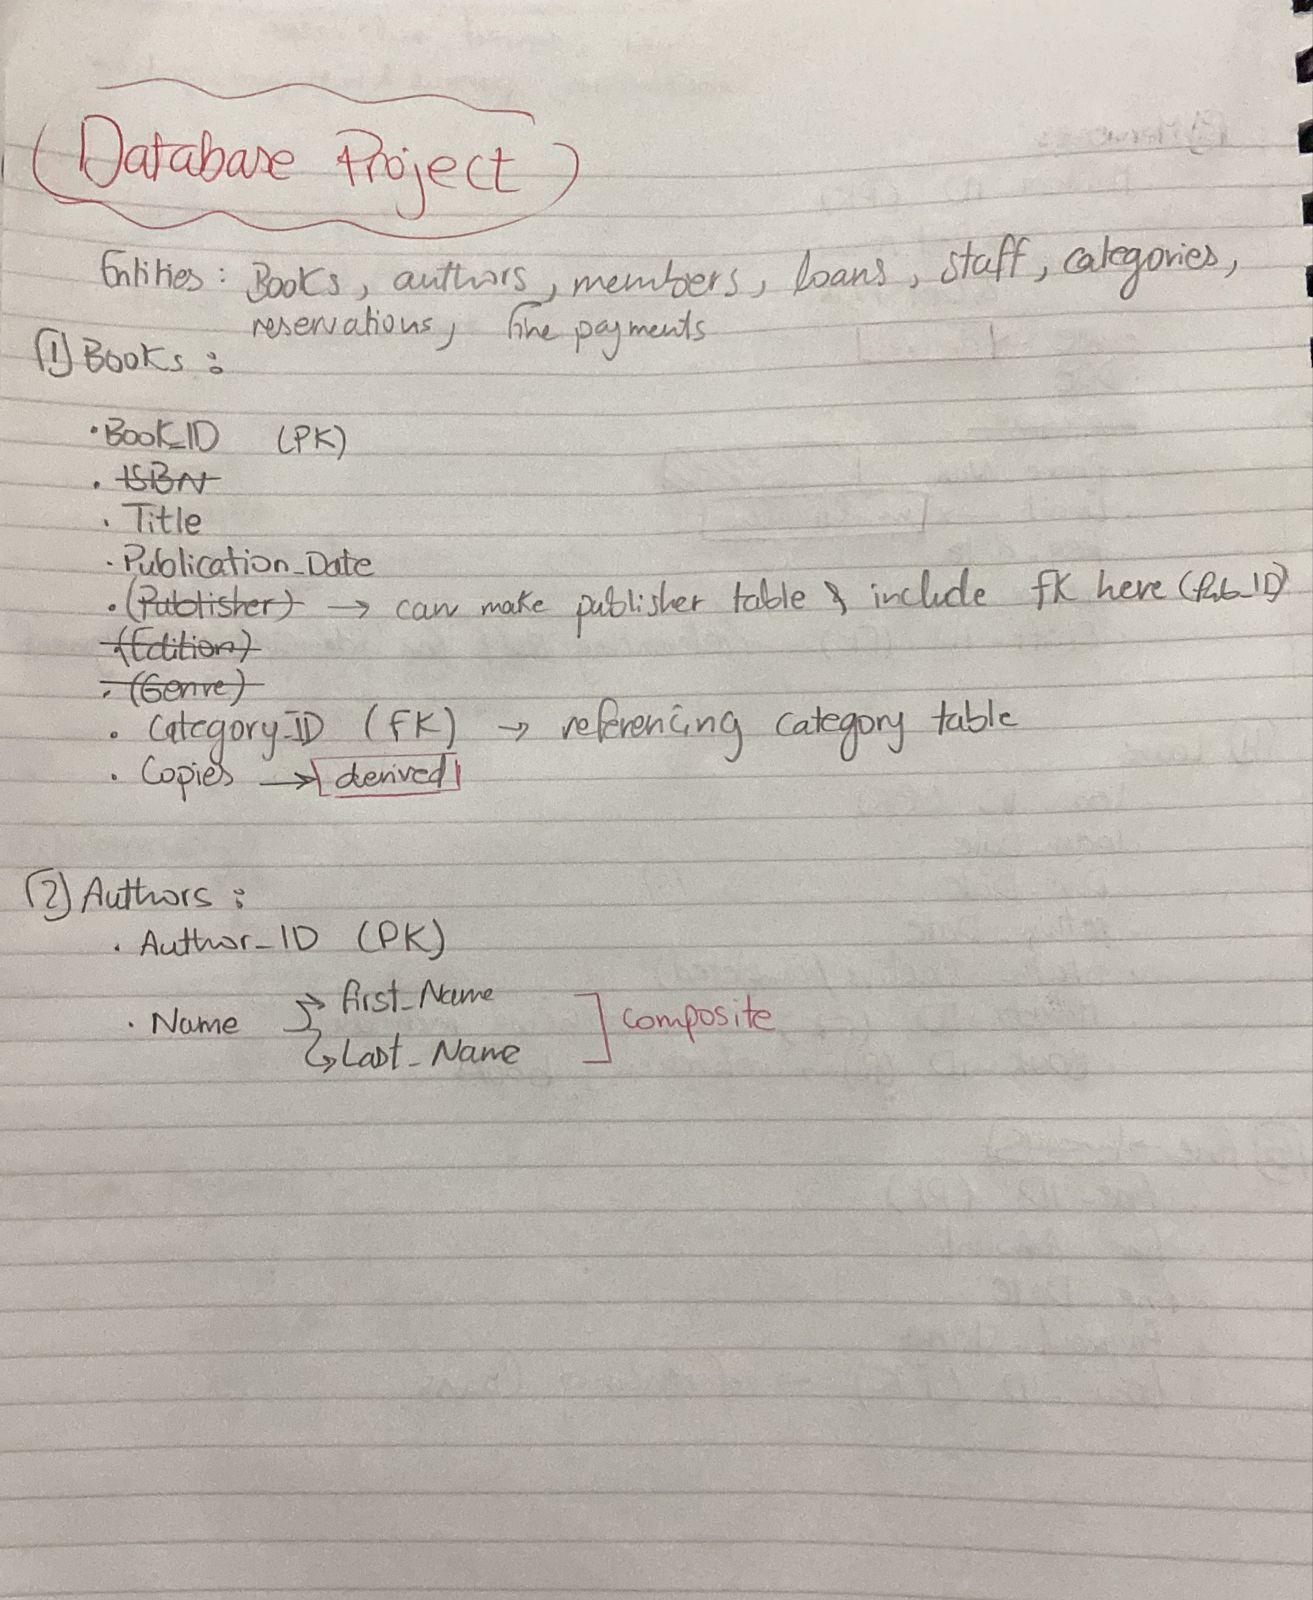 Database Project
Entities: Books, authors, members, loans, staff, categories,
reservations, fine payments
(1) Books:
• Book_ID (PK)
• ISBN
• Title
• Publication_Date
• (Publisher) → can make publisher table & include fk here (Pub_ID)
(Edition)
• (Genre)
• Category_ID (FK) → referencing category table
• Copies → derived
(2) Authors:
• Author_ID (PK)
• Name → first_Name
→ Last_Name ] composite